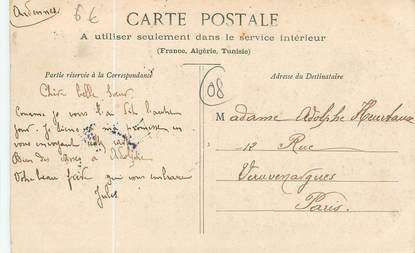 Ardennes
6 €
CARTE POSTALE
A utiliser seulement dans le service intérieur
(France, Algérie, Tunisie)
Partie réservée à la Correspondance
Adresse du Destinataire
08
Chère belle Sœur
Comme je vous l'ai dit l'autre
jour. Je tiens ma promesse en
vous envoyant
Bien des choses à Adolphe
Votre beau frère qui vous embrasse
Jules
Madame Adolphe
12 Rue
Vauvenargues
Paris.